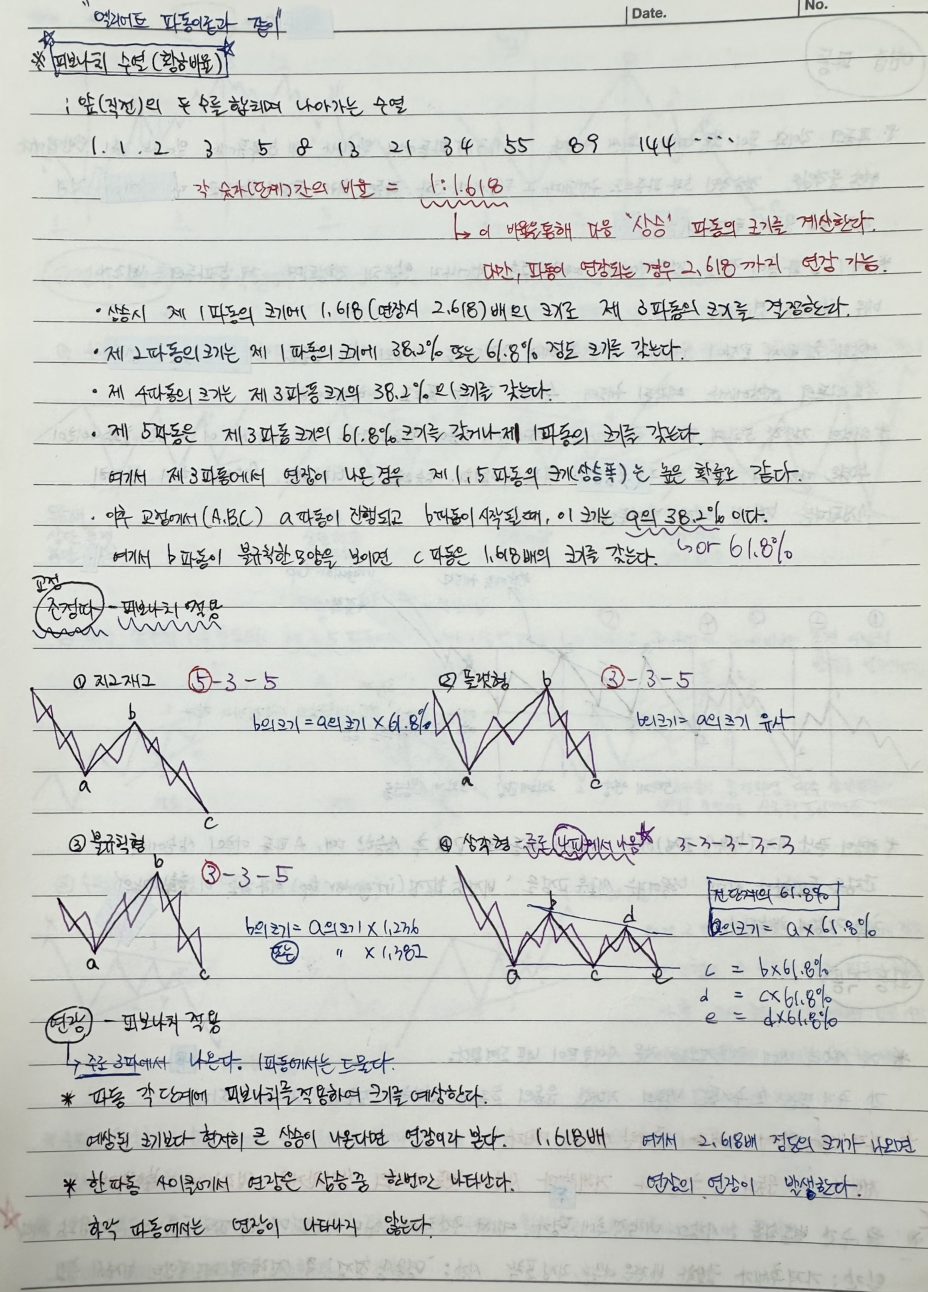 Date.
No.
"엘리어트 파동이론과 같이"
※ 피보나치 수열(황금비율)
; 앞(직전)의 두 수를 합하며 나아가는 수열
1. 1. 2 3 5 8 13 21 34 55 89 144 ....
각 숫자(단계)간의 비율 = 1:1.618
↳ 이 비율을통해 다음 '상승' 파동의 크기를 계산한다.
다만, 파동이 연장되는 경우 2.618까지 연장 가능.
· 상승시 제 1파동의 크기에 1.618(연장시 2.618)배의 크기로 제 3파동의 크기를 결정한다.
· 제 2파동의크기는 제 1파동의 크기에 38.2% 또는 61.8% 정도 크기를 갖는다.
· 제 4파동의 크기는 제 3파동 크기의 38.2%의 크기를 갖는다.
· 제 5파동은 제 3파동 크기의 61.8% 크기를 갖거나 제 1파동의 크기를 갖는다.
여기서 제 3파동에서 연장이 나온경우 제 1,5파동의 크기(상승폭)는 높은 확률로 같다.
· 이후 교정에서(A.B.C) a파동이 진행되고 b파동이 시작될때, 이 크기는 a의 38.2% 이다.
↳or 61.8%
여기서 b파동이 불규칙한 모양을 보이면 c파동은 1.618배의 크기를 갖는다.
교정
조정파 - 피보나치 적용
① 지그재그 ⑤-3-5
b의크기=a의크기×61.8%
b
a
c
② 플랫형 ③-3-5
b의크기=a의크기 유사
b
a
c
③ 불규칙형
③-3-5
b의크기= a의크기 ×1.236
또는 〃 ×1.382
b
a
c
④ 삼각형 주로 4파에서 나옴★ 3-3-3-3-3
전 단계의 61.8%
b의크기= a×61.8%
c = b×61.8%
d = c×61.8%
e = d×61.8%
b
d
a
c
e
연장 - 피보나치 적용
↳ 주로 3파에서 나온다. 1파동에서는 드물다.
* 파동 각 단계에 피보나치를적용하여 크기를예상한다.
예상된 크기보다 현저히 큰 상승이 나온다면 연장이라 본다. 1.618배 여기서 2.618배 정도의 크기가 나오면
연장의 연장이 발생한다.
* 한파동 사이클에서 연장은 상승중 한번만 나타난다.
하락 파동에서는 연장이 나타나지 않는다.